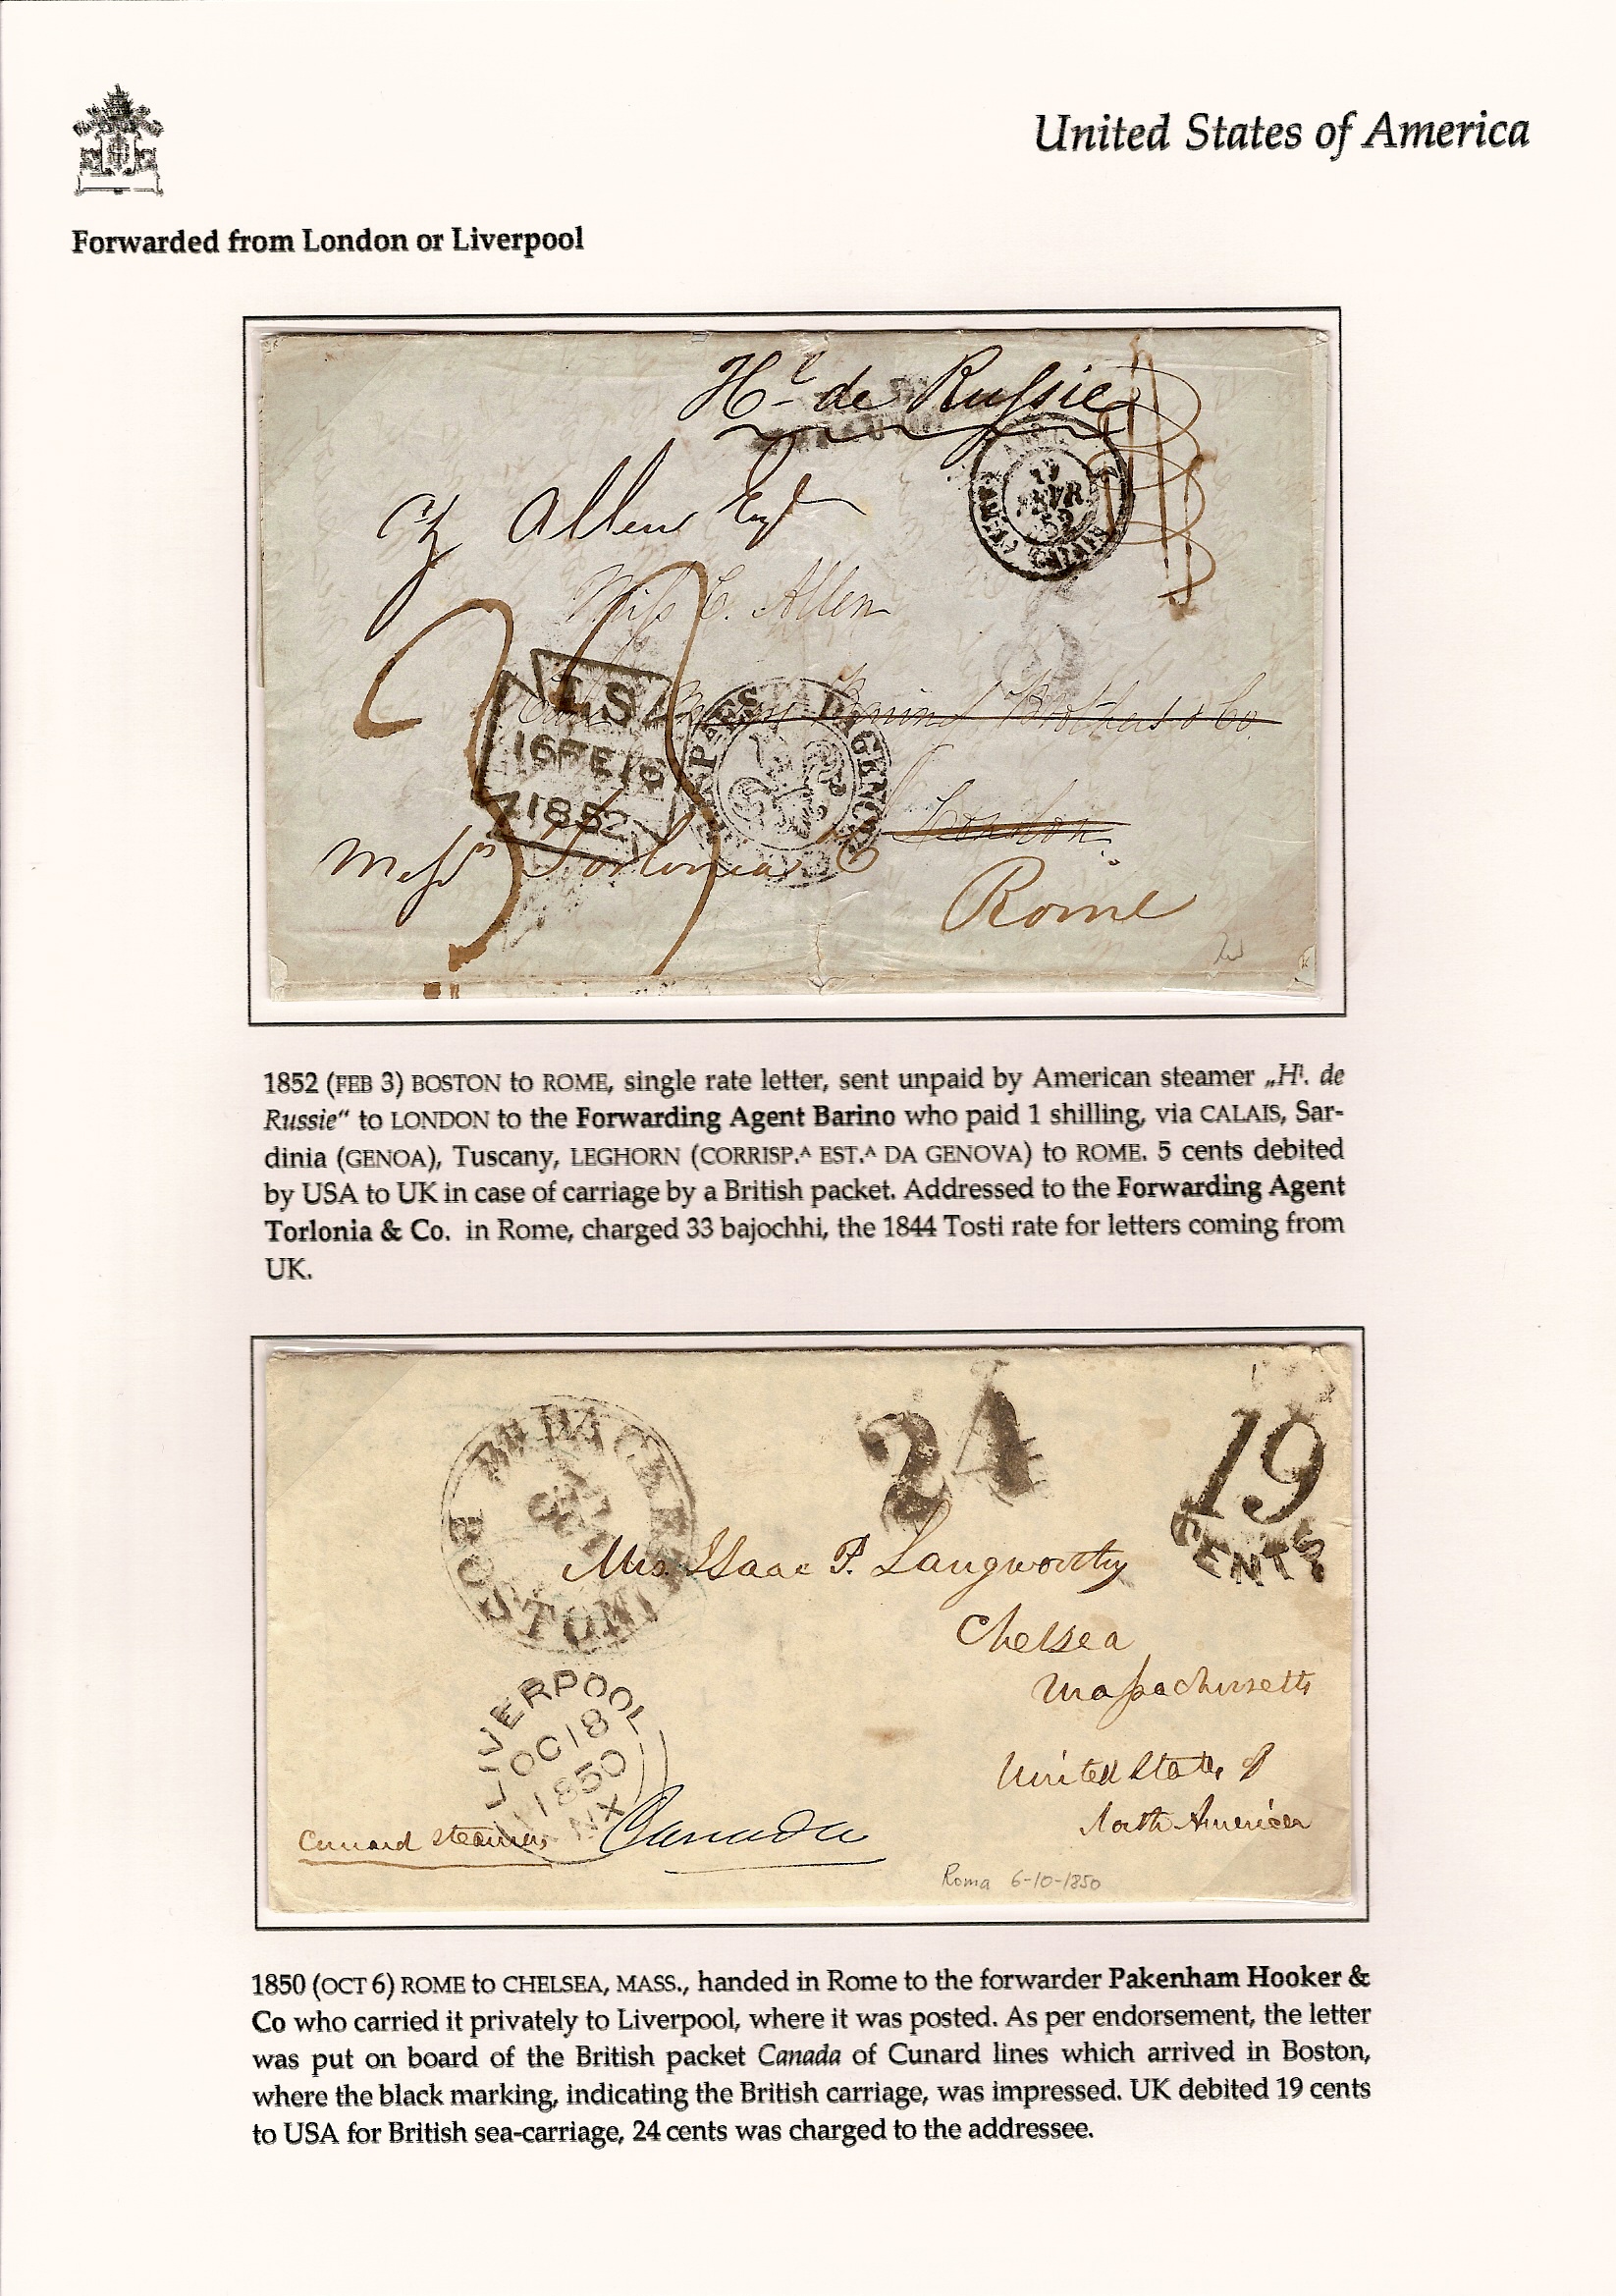 United States of America
Forwarded from London or Liverpool
Hl de Russie
Allen Esqr
Miss C. Allen
16 FE 16
1852
London
Messrs Torlonia
Rome
1852 (FEB 3) BOSTON to ROME, single rate letter, sent unpaid by American steamer „Hl. de
Russie“ to LONDON to the Forwarding Agent Barino who paid 1 shilling, via CALAIS, Sar-
dinia (GENOA), Tuscany, LEGHORN (CORRISP.A EST.A DA GENOVA) to ROME. 5 cents debited
by USA to UK in case of carriage by a British packet. Addressed to the Forwarding Agent
Torlonia & Co. in Rome, charged 33 bajochhi, the 1844 Tosti rate for letters coming from
UK.
24
19
CENTS
Mrs. Isaac P. Langworthy
Chelsea
Massachusetts
LIVERPOOL
OC 18
1850
NX
United States of
North America
Cunard steamer Canada
Roma 6-10-1850
1850 (OCT 6) ROME to CHELSEA, MASS., handed in Rome to the forwarder Pakenham Hooker &
Co who carried it privately to Liverpool, where it was posted. As per endorsement, the letter
was put on board of the British packet Canada of Cunard lines which arrived in Boston,
where the black marking, indicating the British carriage, was impressed. UK debited 19 cents
to USA for British sea-carriage, 24 cents was charged to the addressee.